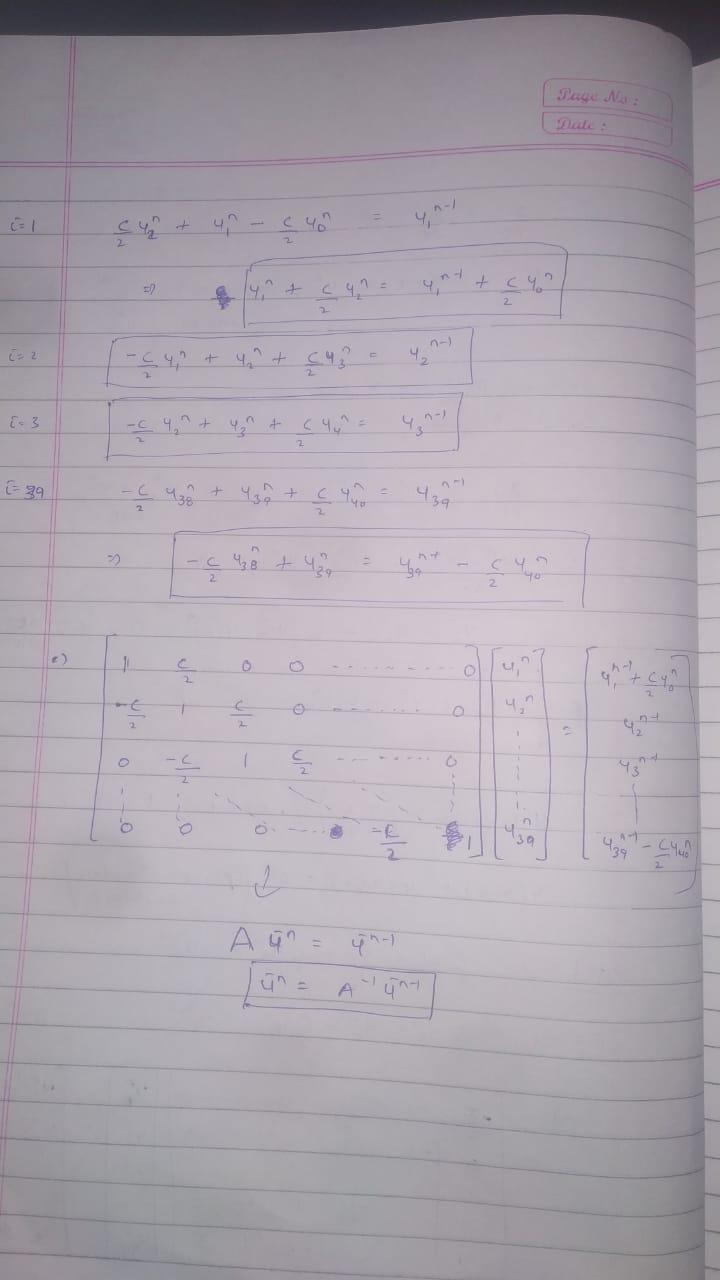 Page No :
Date :
i=1 c/2 u₂ⁿ + u₁ⁿ − c/2 u₀ⁿ = u₁ⁿ⁻¹
⇒ u₁ⁿ + c/2 u₂ⁿ = u₁ⁿ⁻¹ + c/2 u₀ⁿ
i=2 −c/2 u₁ⁿ + u₂ⁿ + c/2 u₃ⁿ = u₂ⁿ⁻¹
i=3 −c/2 u₂ⁿ + u₃ⁿ + c/2 u₄ⁿ = u₃ⁿ⁻¹
i=39 −c/2 u₃₈ⁿ + u₃₉ⁿ + c/2 u₄₀ⁿ = u₃₉ⁿ⁻¹
⇒ −c/2 u₃₈ⁿ + u₃₉ⁿ = u₃₉ⁿ⁻¹ − c/2 u₄₀ⁿ
1 c/2 0 0 ------- 0 u₁ⁿ u₁ⁿ⁻¹ + c/2 u₀ⁿ
−c/2 1 c/2 0 ------ 0 u₂ⁿ = u₂ⁿ⁻¹
0 −c/2 1 c/2 ------ 0 u₃ⁿ⁻¹
0 0 0 ---- −c/2 1 u₃₉ⁿ u₃₉ⁿ⁻¹ − c/2 u₄₀ⁿ
↓
A ūⁿ = ūⁿ⁻¹
ūⁿ = A⁻¹ ūⁿ⁻¹